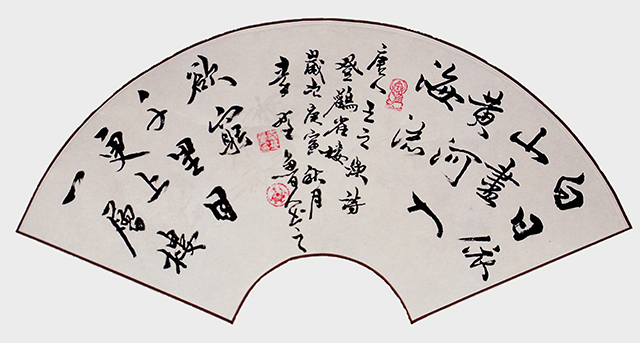 白日依
山盡
黄河入
海流
唐人王之渙詩
登鸛雀樓
歲次庚寅秋月
李
欲窮
千里目
更上
一層樓